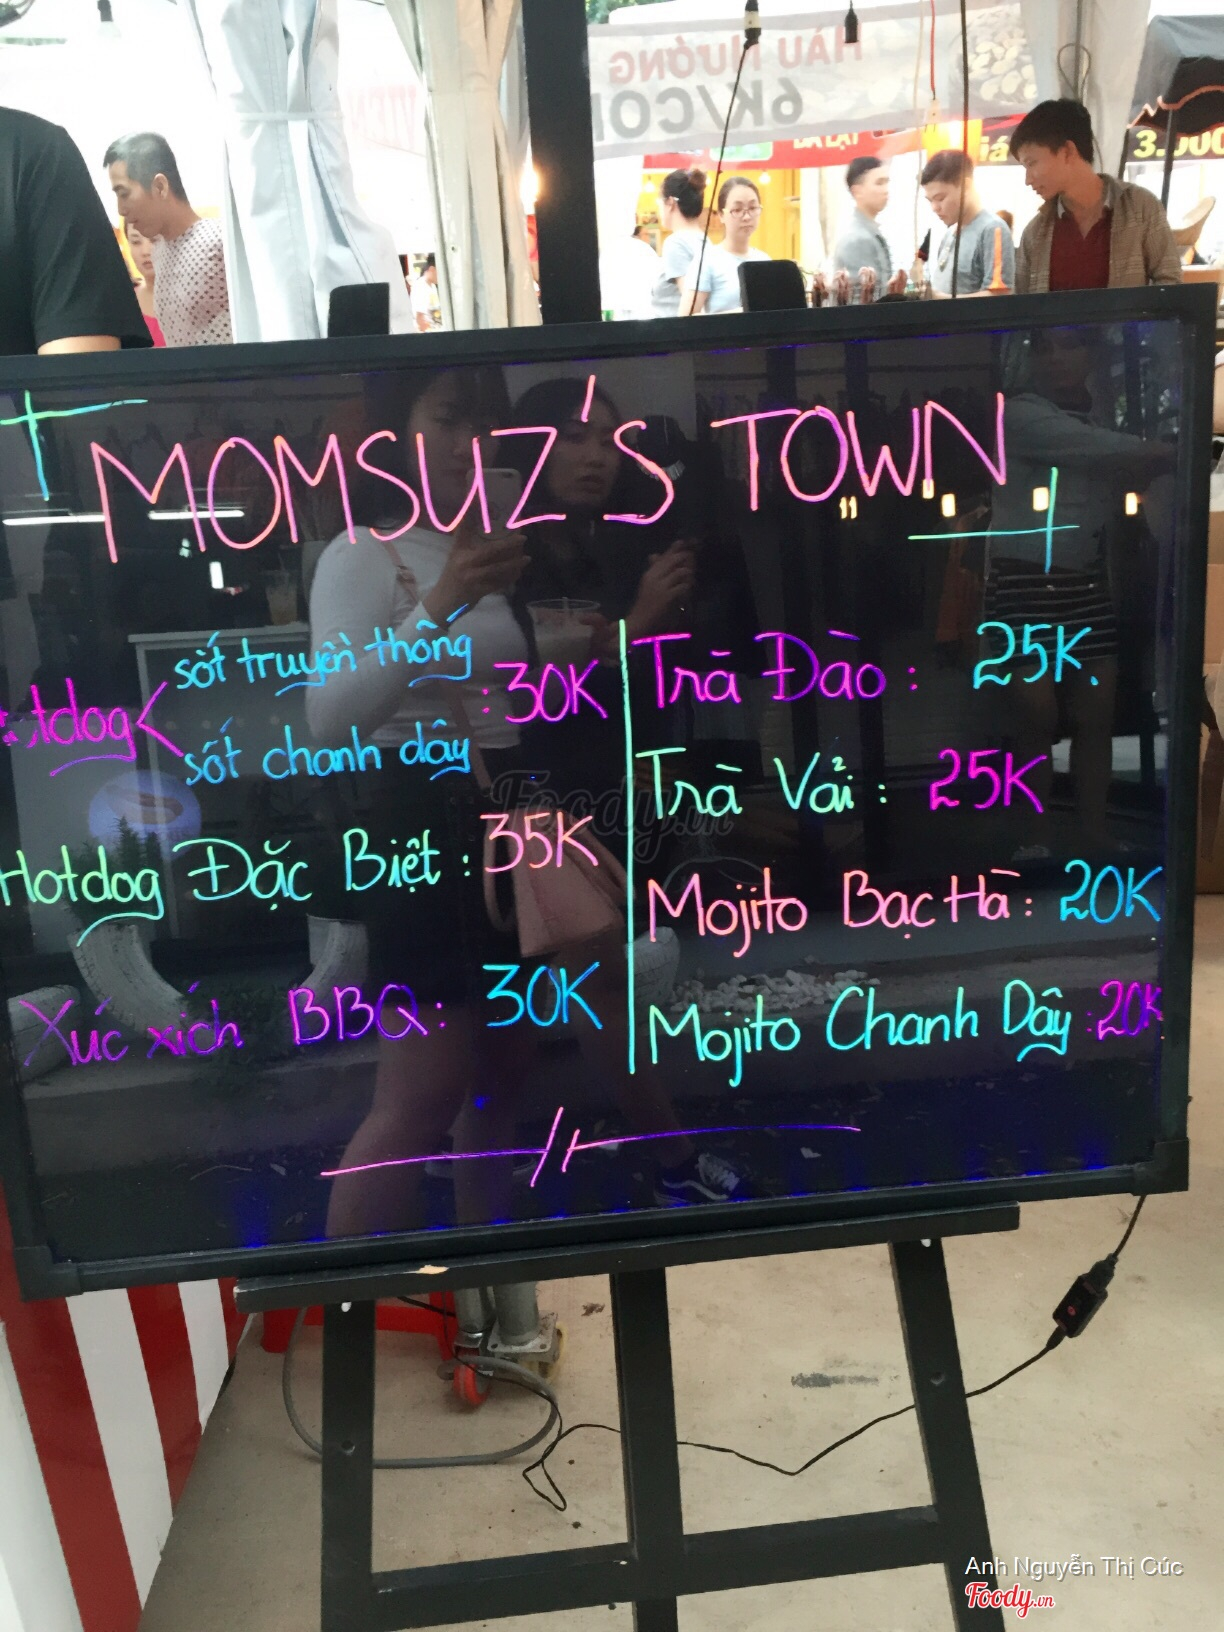 HÀU NƯỚNG
6K/CO
3.000
MOMSUZ'S TOWN
sốt truyền thống
tdog < : 30K
sốt chanh dây
Hotdog Đặc Biệt : 35K
Xúc xích BBQ : 30K
Trà Đào : 25K.
Trà Vải : 25K
Mojito Bạc Hà : 20K
Mojito Chanh Dây : 20K
Foody.vn
Anh Nguyễn Thị Cúc
Foody.vn